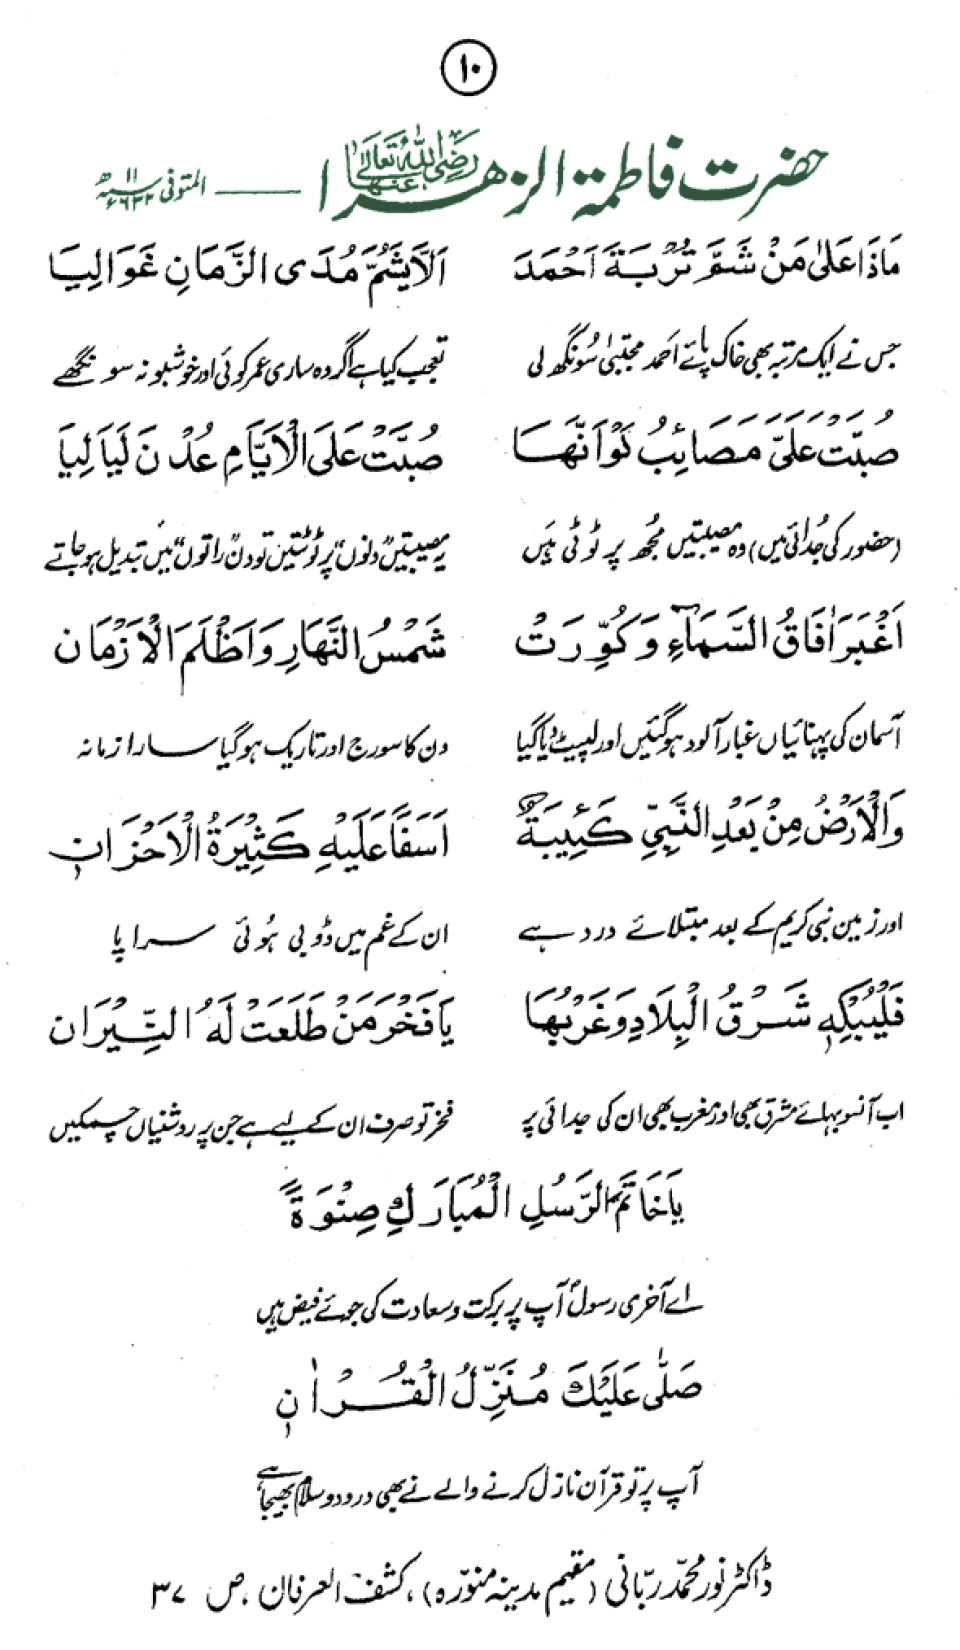 ۱۰
حضرت فاطمۃ الزھرا رضی اللہ تعالیٰ عنہا — المتوفی ۱۱ھ ۶۳۲ء
مَاذَا عَلىٰ مَنْ شَمَّ تُرْبَةَ اَحْمَدَ اَلاَّ يَشُمَّ مُدَى الزَّمَانِ غَوَالِيَا
جس نے ایک مرتبہ بھی خاک پائے احمد مجتبیٰ سُونگھ لی تعجب کیا ہے اگر وہ ساری عمر کوئی اور خوشبو نہ سونگھے
صُبَّتْ عَلَىَّ مَصَائِبُ لَوْ اَنَّهَا صُبَّتْ عَلَى الْاَيَّامِ عُدْنَ لَيَالِيَا
(حضور کی جُدائی میں) وہ مصیبتیں مُجھ پر ٹوٹی ہیں یہ مصیبتیں "دنوں" پر ٹوٹتیں تو دن "راتوں" میں تبدیل ہو جاتے
اَغْبَرَ اٰفَاقُ السَّمَآءِ وَكُوِّرَتْ شَمْسُ النَّهَارِ وَاَظْلَمَ الْاَزْمَان
آسمان کی پہنائیاں غبار آلود ہو گئیں اور لپیٹ دیا گیا دن کا سورج اور تاریک ہو گیا سارا زمانہ
وَالْاَرْضُ مِنْ بَعْدِ النَّبِيِّ كَئِيبَةٌ اَسَفًا عَلَيْهِ كَثِيْرَةُ الْاَحْزَانِ
اور زمین نبی کریم کے بعد مبتلائے درد ہے ان کے غم میں ڈوبی ہوئی سراپا
فَلْيُبْكِهٖ شَرْقُ الْبِلَادِ وَغَرْبُهَا يَا فَخْرَ مَنْ طَلَعَتْ لَهُ النِّيْرَان
اب آنسو بہائے مشرق بھی اور مغرب بھی ان کی جدائی پر فخر تو صرف ان کے لیے ہے جن پر روشنیاں چمکیں
يَا خَاتَمَ الرُّسُلِ الْمُبَارَكِ صِنْوَةً
اے آخری رسول آپ پر برکت و سعادت کی جوئے فیض ہیں
صَلّٰى عَلَيْكَ مُنَزِّلُ الْقُرْاٰنِ
آپ پر تو قرآن نازل کرنے والے نے بھی درود و سلام بھیجا ہے
ڈاکٹر نور محمّد ربّانی (مقیم مدینہ منوّرہ)، کشف العرفان، ص ۳۷